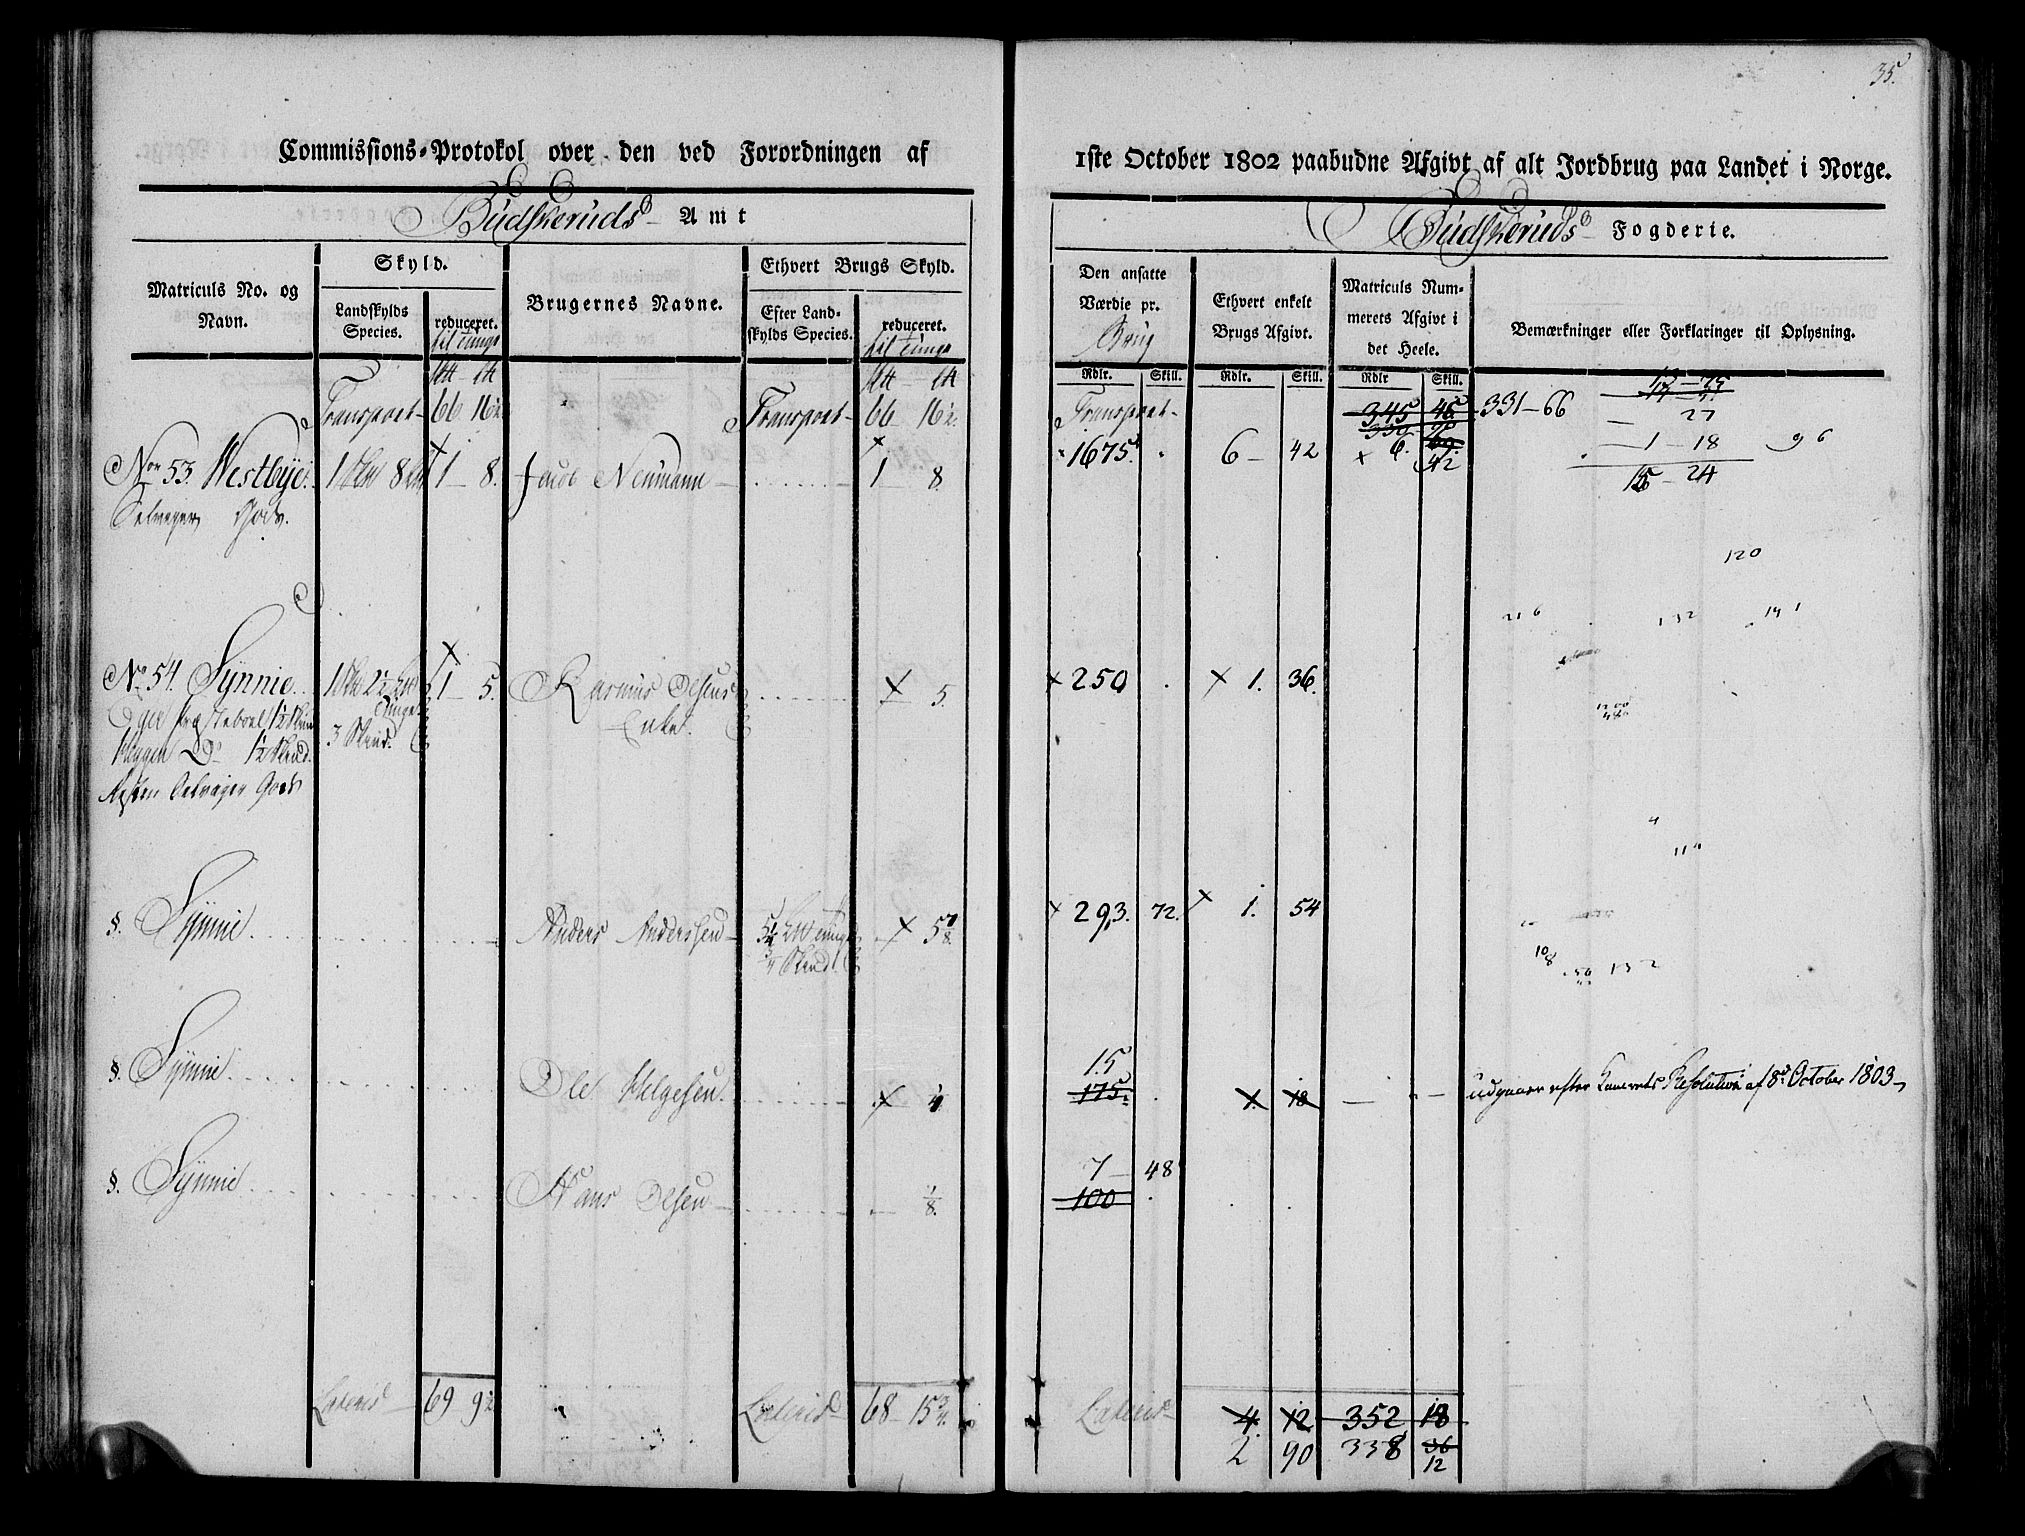 35.
Commissions-Protokol over den ved Forordningen af
1ste October 1802 paabudne Afgivt af alt Jordbrug paa Landet i Norge.
Budskeruds Amt
Budskeruds Fogderie.
Matriculs No. og Navn.
Skyld.
Landskylds Species.
reduceret.
til Tunge
Brugernes Navne.
Ethvert Brugs Skyld.
Efter Landskylds Species.
reduceret.
til Tunge
Den ansatte Værdie pr.
Brug
Ethvert enkelt Brugs Afgivt.
Matriculs Nummerets Afgivt i det Heele.
Bemærkninger eller Forklaringer til Oplysning.
Rdlr. Skill. Rdlr. Skill. Rdlr Skill.
Transport 66 16½ Transport 66 16½ Transport 345 45 331-66
27
1-18 96
24
No 53. Westbye. 1 8 1 8. Jacob Neumann 1 8 1675. 6 42 6. 42
Selveger Gods.
120
132
No 54. Synnie 1 2½ 1 5. Rasmus Olsens 5. 250 1. 36.
Enke.
3 Skind.
Resten Selveger Gods
§. Synnie Anders Anderssen 5⅞ 293. 72. 1. 54
§. Synnie Ole Helgesen 15 175. 1. 18 udgaaer efter Kamerets Resolution af 8de October 1803
§. Synnie Hans Olsen ⅛. 7 48
100
Lateris 69 9½ Lateris 68 15¾ Lateris 4. 12 352 18
2 90 338 36
12